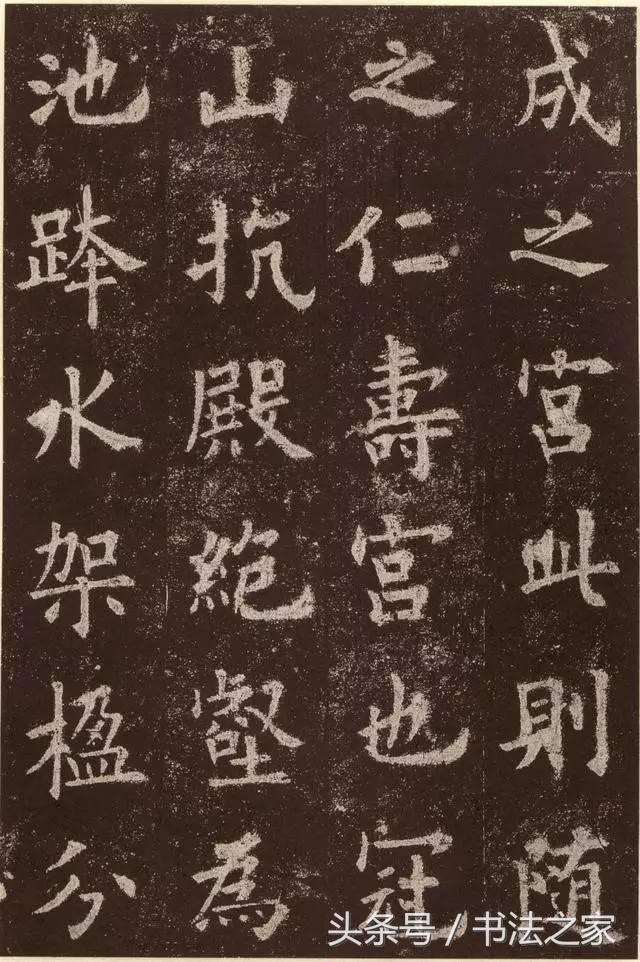 成之宮此則随
之仁壽宮也冠
山抗殿絶壑為
池跨水架楹分
头条号 / 书法之家